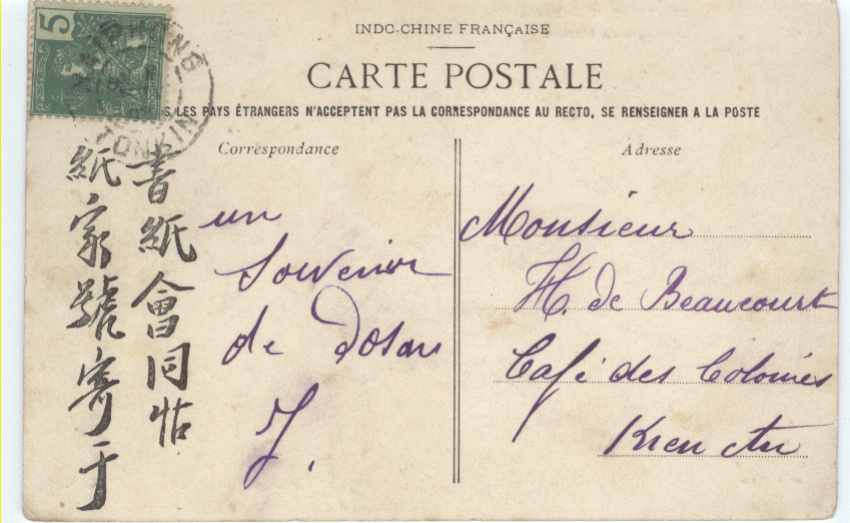 5
HAIPHONG
TONKIN
INDO-CHINE FRANÇAISE
CARTE POSTALE
LES PAYS ÉTRANGERS N'ACCEPTENT PAS LA CORRESPONDANCE AU RECTO, SE RENSEIGNER A LA POSTE
Correspondance
Adresse
書紙會同
紙家號寄于
un
Souvenir
de Doson
J.
Monsieur
H. de Beaucourt
Café des Colonies
Kien An